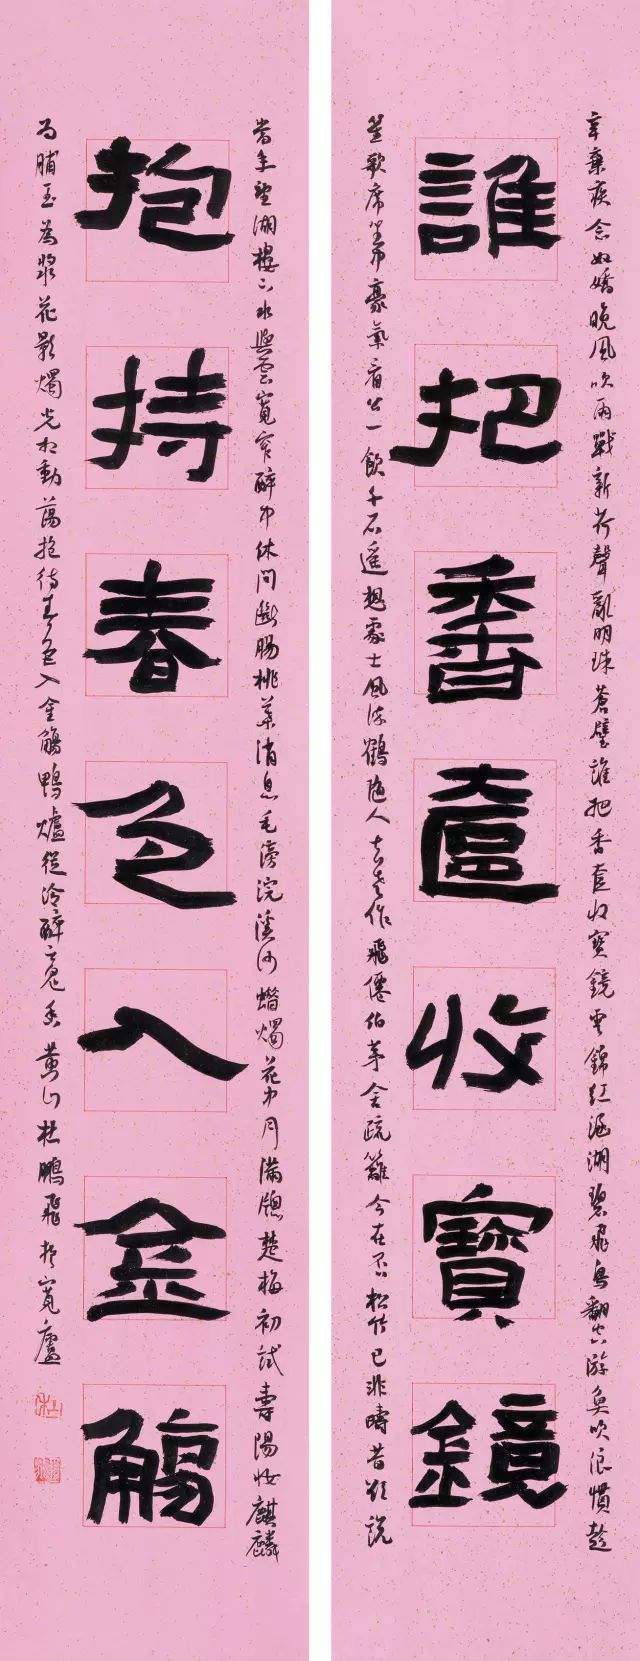 辛棄疾念奴嬌晚風吹雨戰新荷聲亂明珠蒼璧誰把香奩收寶鏡雲錦紅涵湖碧飛鳥翻空游魚吹浪慣趁
誰把香奩收寶鏡
笙歌席坐中豪氣看公一飲千石遙想處士風流鶴隨人去老作飛僊伯茅舍疏籬今在否松竹已非疇昔欲說
當年望湖樓下水與雲寬窄醉中休問斷腸桃葉消息毛滂浣溪沙蠟燭花中月滿牕楚梅初試壽陽妝麒麟
抱持春色入金觴
為脯玉為漿花影燭光相動蕩抱持春色入金觴鴨爐從冷醉魂香黃山杜鵬飛於寬廬